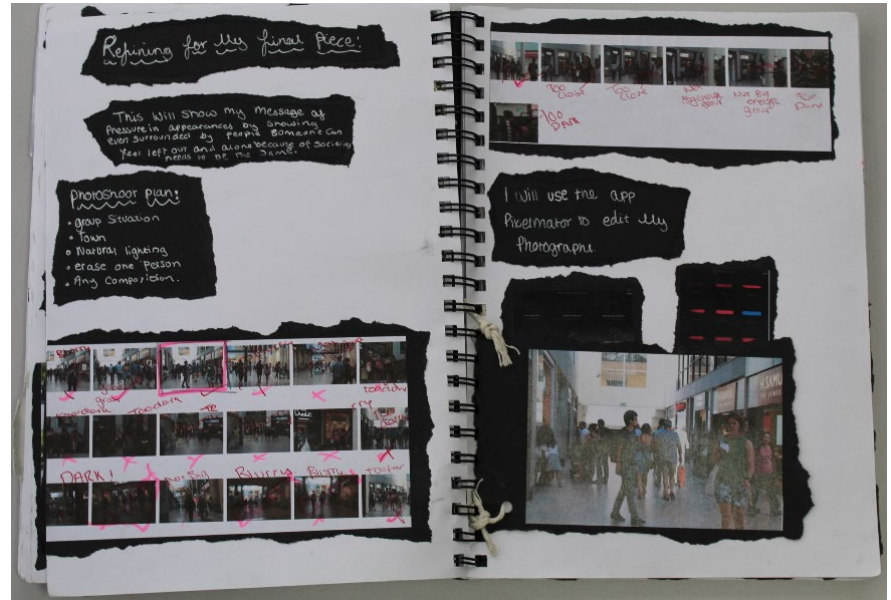 Refining for My final Piece:
This will show my message of
Pressure in appearances by showing
even surrounded by people someone can
feel left out and alone because of society
needs to be the same.
Photoshoot Plan:
• group Situation
• Town
• Natural lighting
• erase one Person
• Any Composition.
Blurry
good
group
Too dark
Too dark
DARK!
Not Big
Blurry
Blurry
Too far
Too
Close
Too
Close
Not
enough
group
Not Big
enough
group
Too
Dark
Too
DARK
I will use the app
Pixelmator to edit My
Photographs.
H.SAMUEL